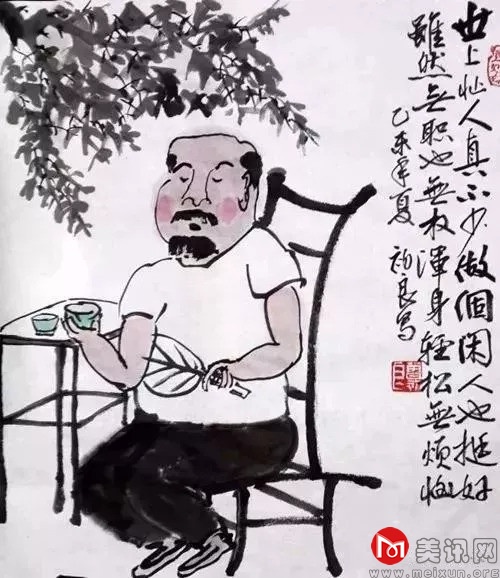 世上忙人真不少做個闲人也挺好
雖然无职也無权渾身輕松無烦恼
乙未年夏 良写
美讯网
www.meixun.org